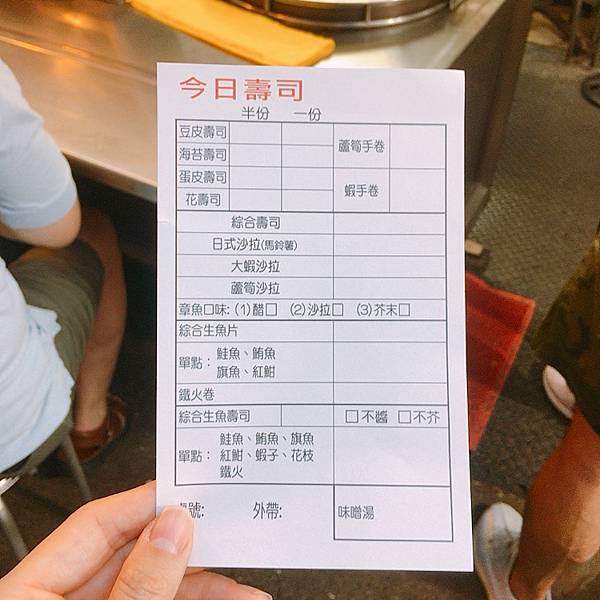 今日壽司
半份 一份
豆皮壽司
海苔壽司 蘆筍手卷
蛋皮壽司
花壽司 蝦手卷
綜合壽司
日式沙拉(馬鈴薯)
大蝦沙拉
蘆筍沙拉
章魚口味: (1)醋□ (2)沙拉□ (3)芥末□
綜合生魚片
單點: 鮭魚、鮪魚
旗魚、紅魽
鐵火卷
綜合生魚壽司 □不醬 □不芥
鮭魚、鮪魚、旗魚
單點: 紅魽、蝦子、花枝
鐵火
號: 外帶: 味噌湯